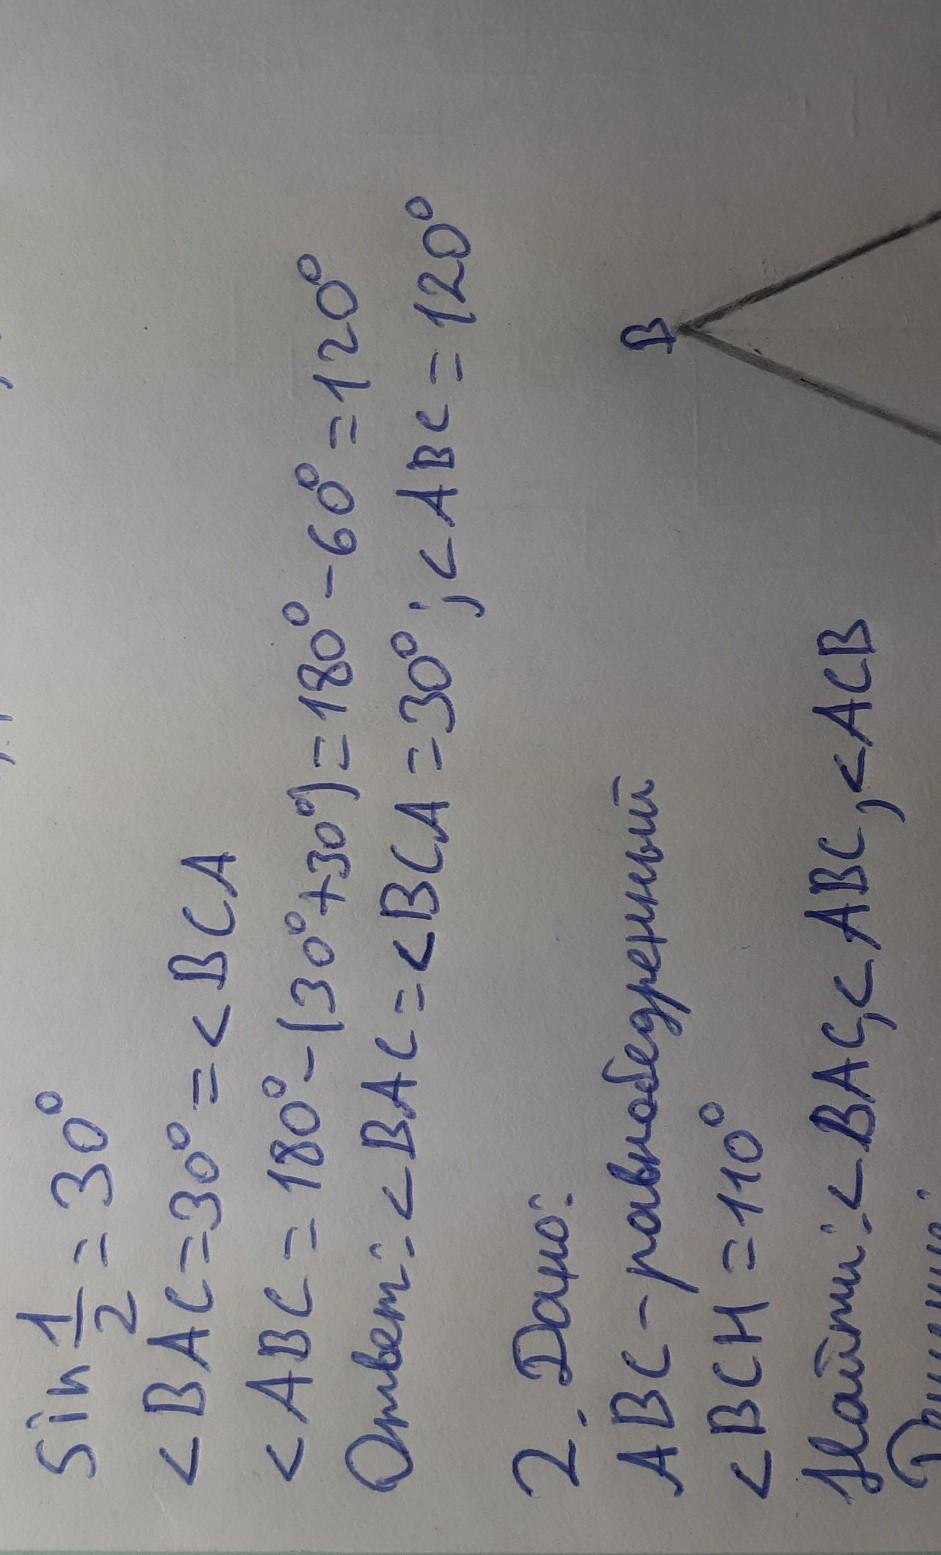 sin 1/2 = 30°
<BAC=30°=<BCA
<ABC=180°-(30°+30°)=180°-60°=120°
Ответ:<BAC=<BCA=30°;<ABC=120°
2. Дано:
ABC-равнобедренный
<BCH=110°
Найти:<BAC,<ABC,<ACB
B